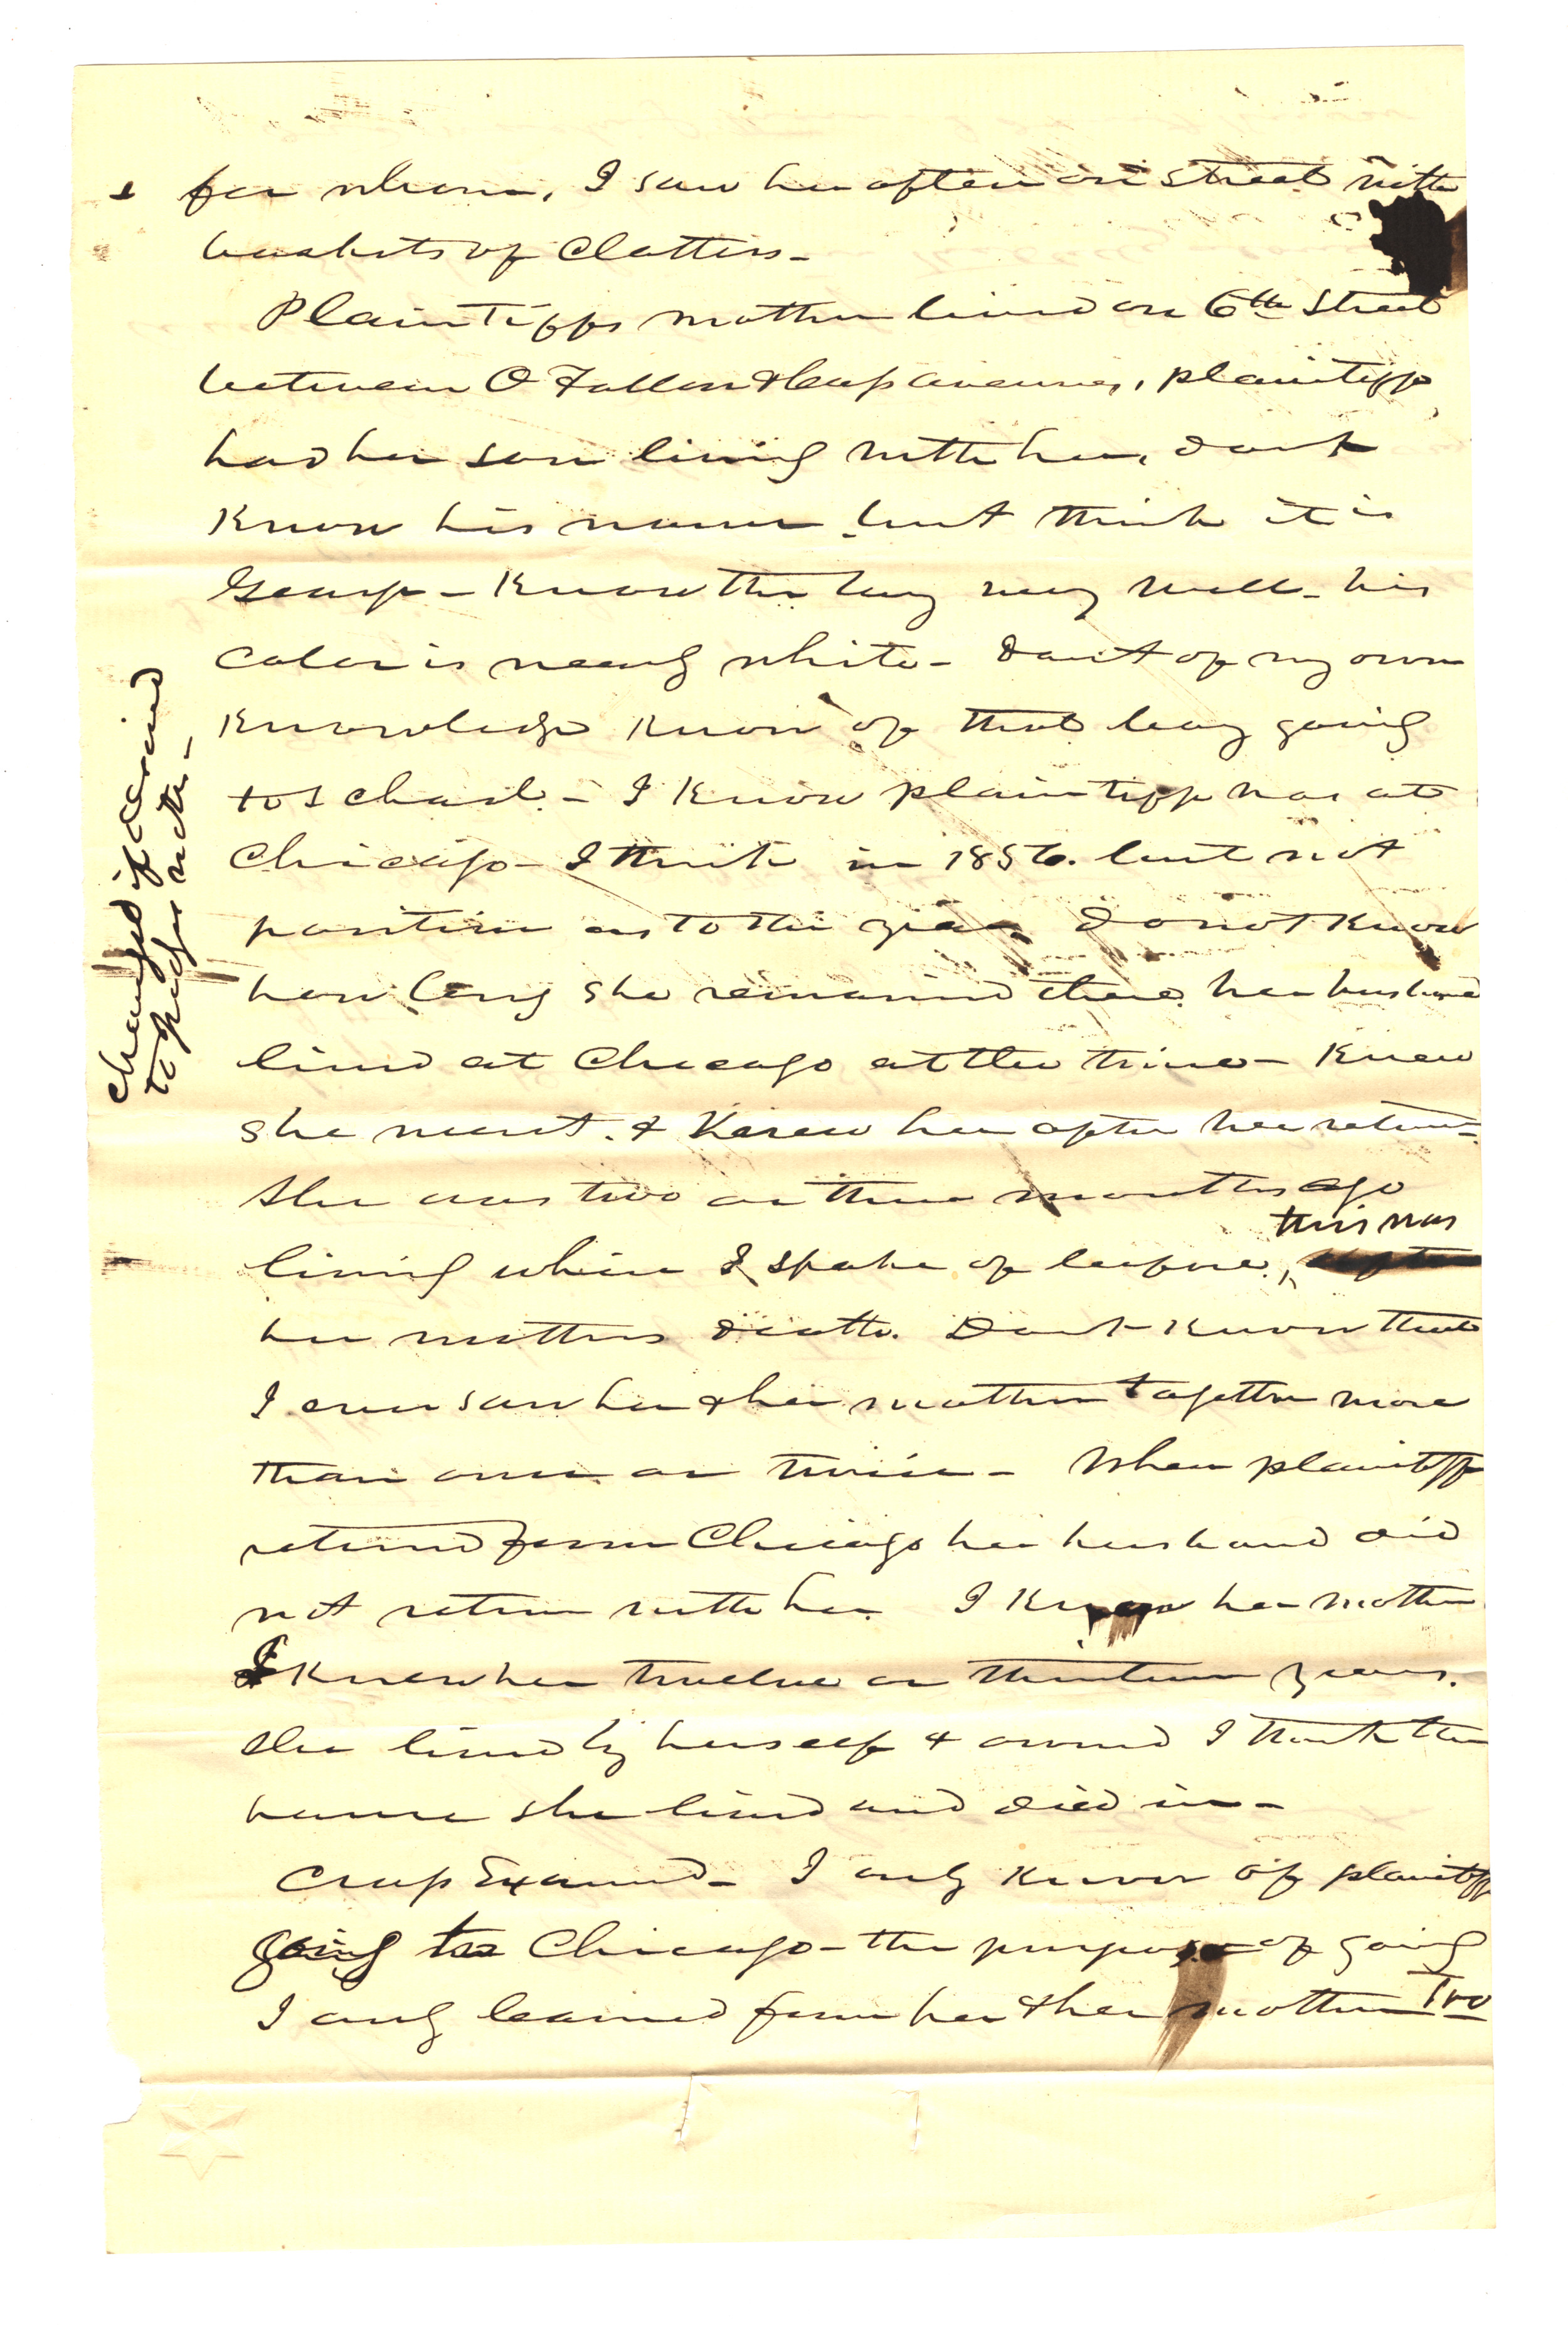 & for whom, I saw her often on street with
baskets of Clothes -
Plaintiffs mother lived on 6th Street
between O Fallon & Cass avenues, plaintiff
had her son living with her, dont
know his name but think it is
George - Know the boy very well - his
color is nearly white - dont of my own
knowledge know of that boy going
to school. - I know plaintiff was at
Chicago - I think in 1856. but not
positive as to the year do not know
how long she remained there. her husband
lived at Chicago at the time - Knew
she went. & Knew her after her return -
She was two or three months ago
living where I spoke of before, this was
her mothers death. Dont know that
I ever saw her & her mother together more
than once or twice - When plaintiff
returned from Chicago her husband did
not return with her. I knew her mother
I knew her twelve or thirteen years.
She lived by herself & owned I think the
house she lived and died in -
Cross Examd - I only know of plaintiff
going to Chicago - the purpose of going
I only learned from her & her mother Two
changed if desired
to